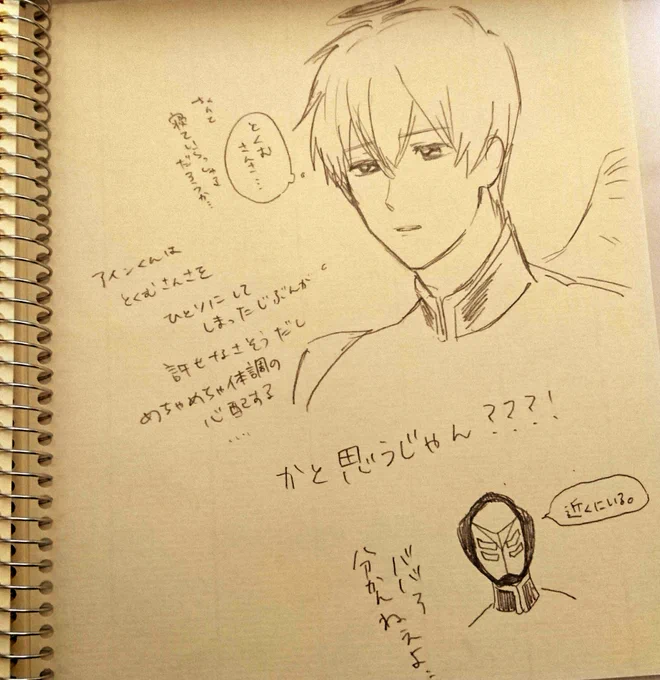 とくむ
さんさ…
さんと
寝ていらっしゃる
だろうか…
アインくんは
とくむさんさを
ひとりにして
しまったじぶんが
許せなさそうだし
めちゃめちゃ体調の
心配する
…
かと思うじゃん???!
近くにいる。
分かんねえよ…